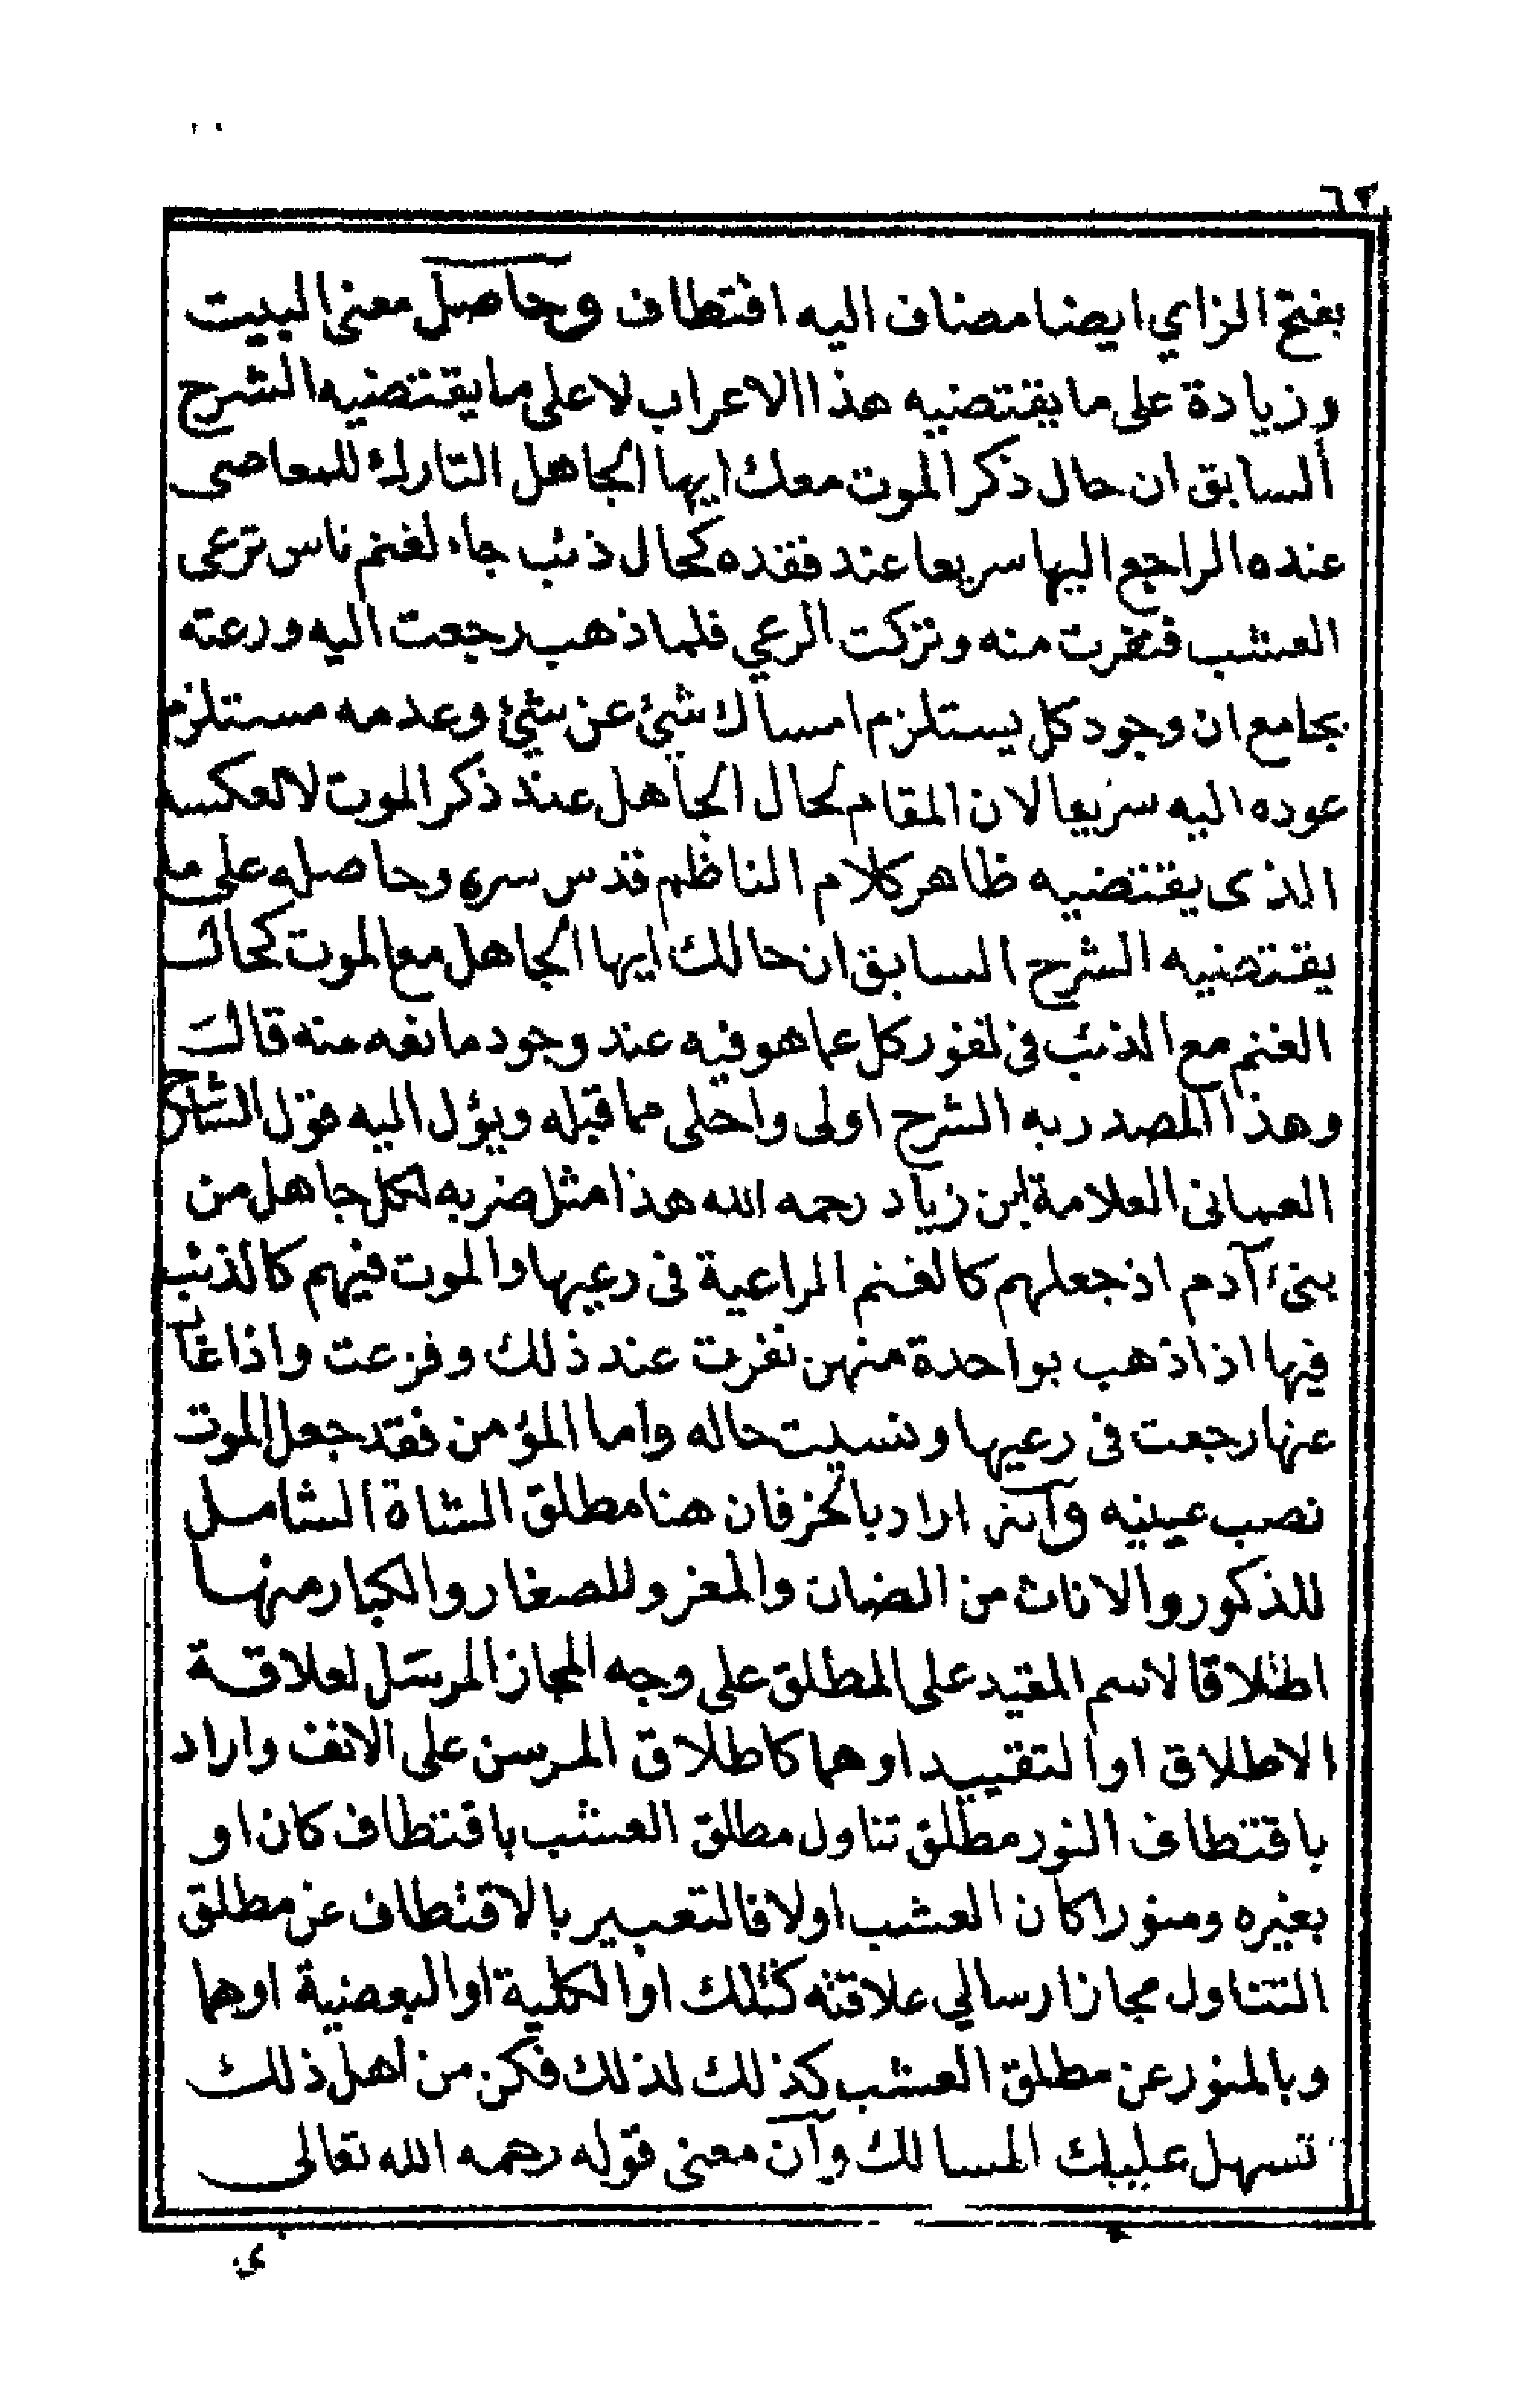 ٦٢
بفتح الزاي ايضا مضاف اليه اقتطاف وحاصل معنى البيت
وزيادة على ما يقتضيه هذا الاعراب لا على ما يقتضيه الشرح
السابق ان حال ذكر الموت معك ايها الجاهل التارك للمعاصى
عنده الراجع اليها سريعا عند فقده كحال ذئب جاء لغنم ناس ترعى
العشب فنفرت منه وتركت الرعي فلما ذهب رجعت اليه ورعته
بجامع ان وجود كل يستلزم امساك شيئ عن شيئ وعدمه مستلزم
عوده اليه سريعا لان المقام لحال الجاهل عند ذكر الموت لا لعكسه
الذى يقتضيه ظاهر كلام الناظم قدس سره وحاصله على ما
يقتضيه الشرح السابق ان حالك ايها الجاهل مع الموت كحال
الغنم مع الذئب فى نفور كل عما هو فيه عند وجود مانعه منه قالت
وهذا المصدر به الشرح اولى واحلى مما قبله ويؤل اليه قول الشارح
العمانى العلامة ابن زياد رحمه الله هذا مثل ضربه لكل جاهل من
بنى آدم اذ جعلهم كالغنم الراعية فى رعيها والموت فيهم كالذئب
فيها اذا ذهب بواحدة منهن نفرت عند ذلك وفزعت واذا غاب
عنها رجعت فى رعيها ونسيت حاله واما المؤمن فقد جعل الموت
نصب عينيه وآنه اراد بالخرفان هنا مطلق الشاة الشامل
للذكور والاناث من الضان والمعز وللصغار والكبار منها
اطلاقا لاسم المقيد على المطلق على وجه المجاز المرسل لعلاقة
الاطلاق او التقييد او هما كاطلاق المرسن على الانف واراد
باقتطاف النور مطلق تناول مطلق العشب باقتطاف كان او
بغيره ومنورا كان العشب اولا فالتعبير بالاقتطاف عن مطلق
التناول مجاز ارسالي علاقته كتلك او الكلية او البعضية او هما
وبالمنور عن مطلق العشب كذلك لذلك فكن من اهل ذلك
تسهل عليك المسالك وآن معنى قوله رحمه الله تعالى